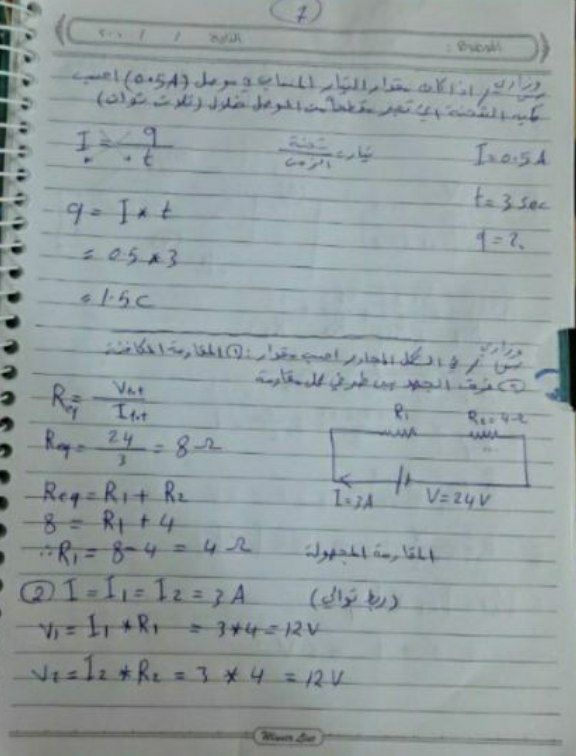 7
التاريخ / / ٢٠٠
الموضوع :
وزاري
س/ اذا كان مقدار التيار المنساب في موصل (0.5A) احسب
كمية الشحنة التي تعبر مقطعا من الموصل خلال (ثلاث ثوان)
I = q / t
تيار = شحنة / الزمن
I = 0.5 A
t = 3 sec
q = I * t
q = ?
= 0.5 * 3
= 1.5 C
وزاري
س/ في الشكل المجاور احسب مقدار : ① المقاومة المكافئة
② فرق الجهد بين طرفي كل مقاومة
Req = Vtot / Itot
R1 R2 = 4Ω
Req = 24 / 3 = 8Ω
I = 3A V = 24V
Req = R1 + R2
8 = R1 + 4
∴ R1 = 8 - 4 = 4Ω المقاومة المجهولة
② I = I1 = I2 = 3A (ربط توالي)
V1 = I1 * R1 = 3 * 4 = 12V
V2 = I2 * R2 = 3 * 4 = 12V